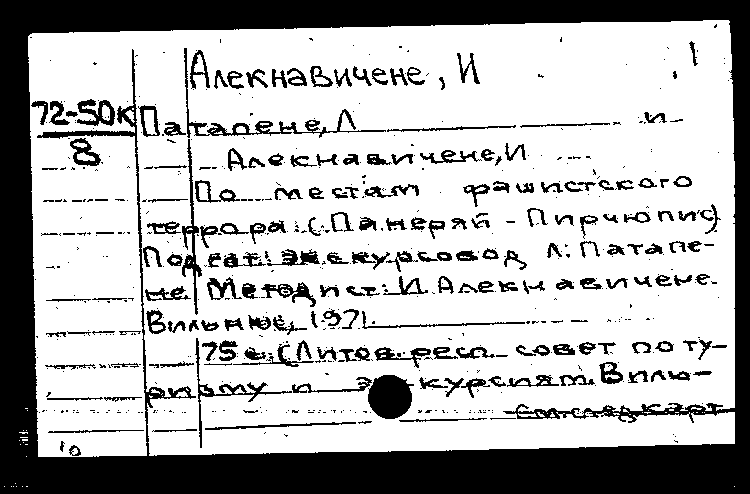 Алекнавичене, И
72-50К
8
Патапене, Л и
Алекнавичене, И
По местам фашистского
террора: (Панеряй - Пирчюпис)
Подгот: экскурсовод Л: Патапе-
не. Методист: И. Алекнавичене.
Вильнюс, 1971.
75 с. (Литов. респ. совет по ту-
ризму и экскурсиям. Вилю-
См. след. карт.